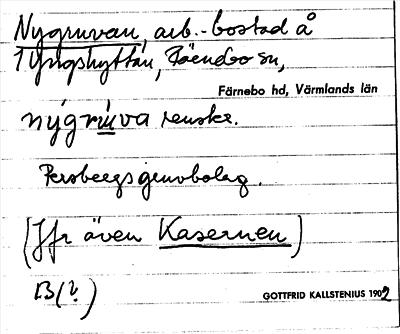 Nygruvan, arb.-bostad å
Yngshyttan, Färnebo sn,
Färnebo hd, Värmlands län
nýgrùva
Persbergs gruvbolag.
(Jfr även Kasernen)
B(?)
GOTTFRID KALLSTENIUS 1902